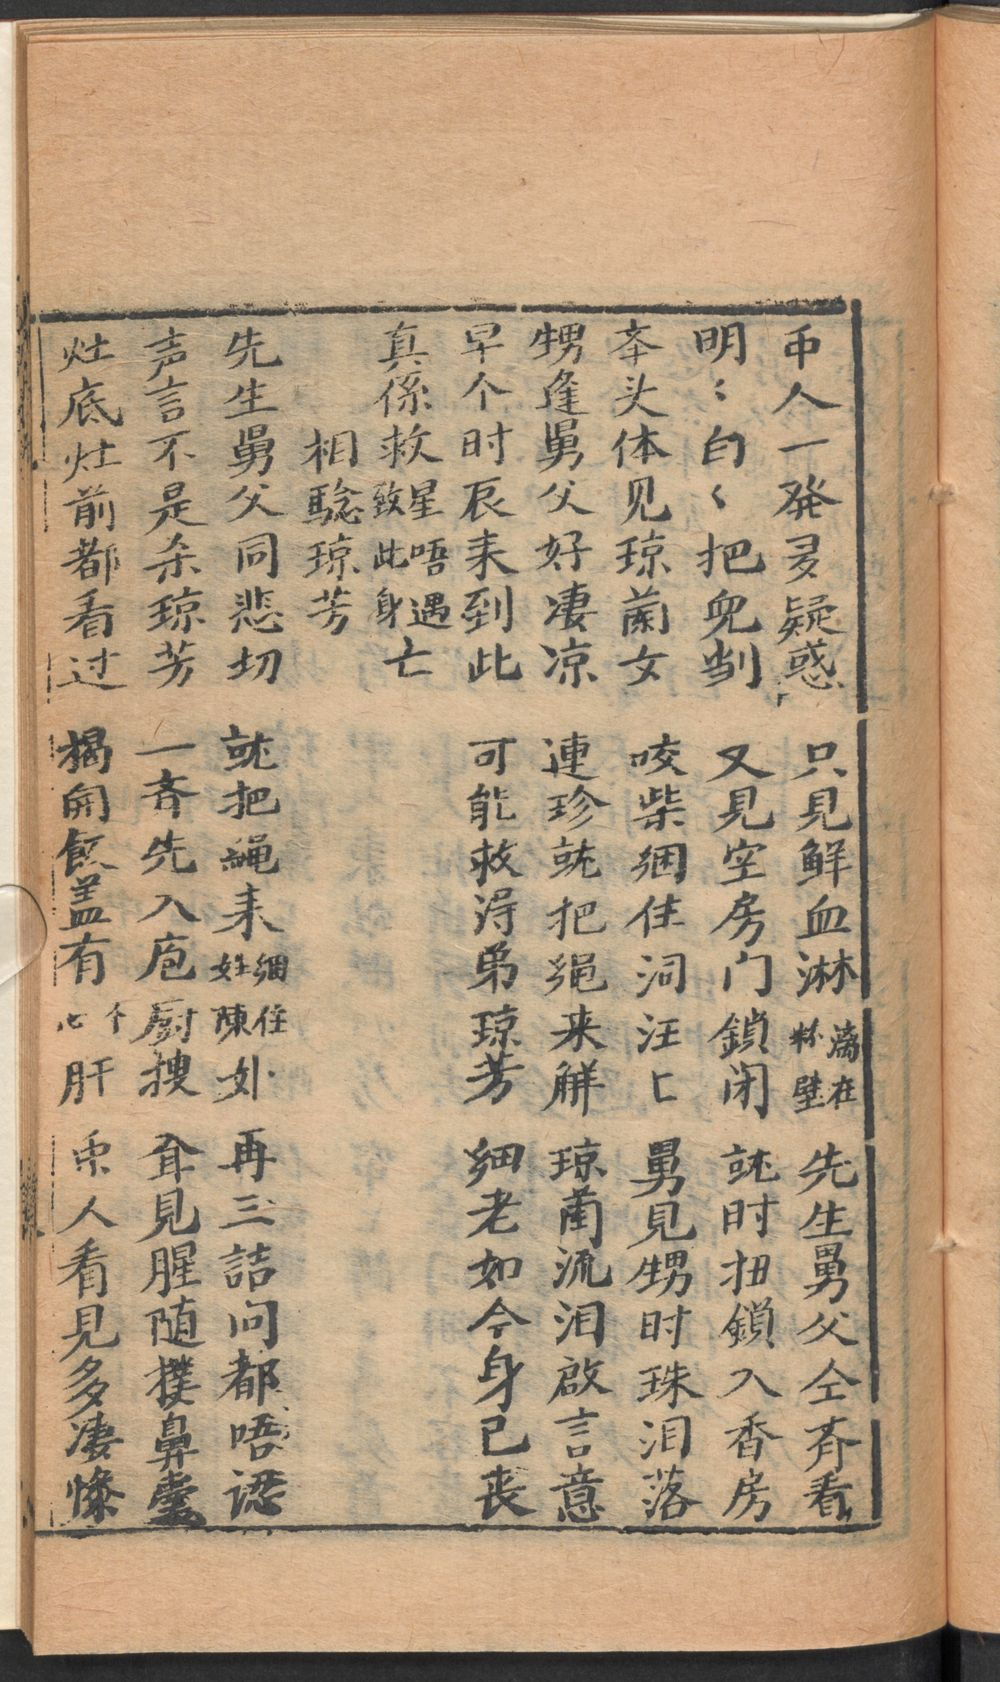 帀人一發多疑惑　只見鮮血淋漓在粉壁　先生舅父仝斉看
明〻白〻把兇割　又見空房门鎖闭　就时扭鎖入香房
夲头体见琼蘭女　咬柴綑住泪汪〻　舅見甥时珠泪落
甥逢舅父好凄凉　連珍就把绳来解　琼蘭流泪啟言意
早个时辰耒到此　可能救得弟琼芳　細老如今身已丧
真係救星唔遇致此身亡
相騐琼芳
先生舅父同悲切　就把繩耒綑住姓陳外　再三詰问都唔認
声言不是杀琼芳　一斉先入庖厨搜　見腥随撲鼻
灶底灶前都看过　揭開飯盖有个心肝　帀人看見多凄惨